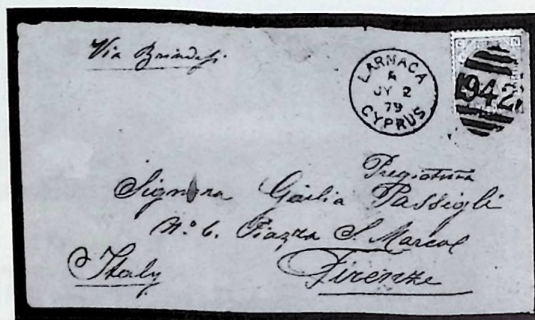 Via Brindisi
LARNACA
A
JY 2
79
CYPRUS
942
Pregiatma
Signora Giulia Passigli
N.º 6. Piazza S. Marco
Italy
Firenze